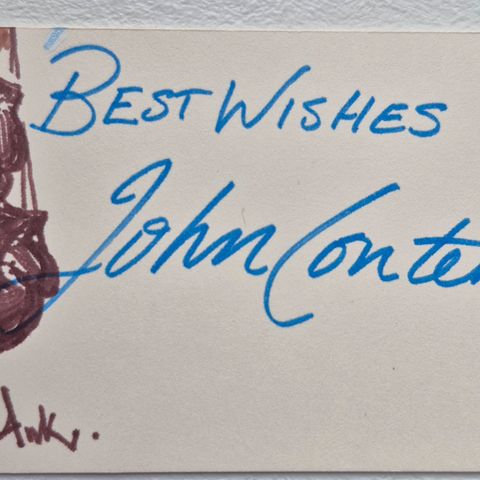 BEST WISHES
John Conte